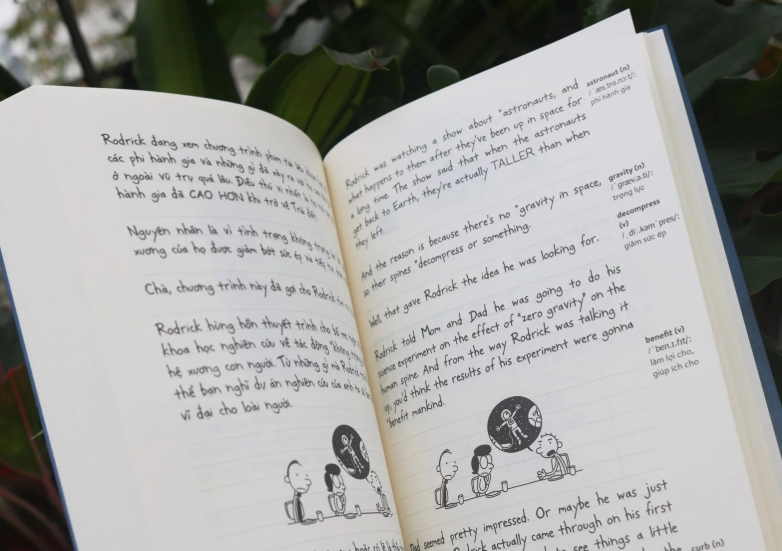 Rodrick đang xem chương trình phim tài liệu
các phi hành gia và những gì đã xảy ra với
ở ngoài vũ trụ quá lâu. Điều thú vị nhất là
hành gia đã CAO HƠN khi trở về Trái Đất
Nguyên nhân là vì tình trạng không trọng
xương của họ được giảm bớt sức ép và tiếp tục
Chà, chương trình này đã gợi cho Rodrick
Rodrick hùng hồn thuyết trình cho bố mẹ
khoa học nghiên cứu về tác động "không
hệ xương con người. Từ những gì mà Rodrick
thể bạn nghĩ dự án nghiên cứu của anh ta sẽ
vĩ đại cho loài người.
Rodrick was watching a show about *astronauts, and
what happens to them after they've been up in space for
a long time. The show said that when the astronauts
get back to Earth, they're actually TALLER than when
they left.
And the reason is because there's no *gravity in space,
so their spines *decompress or something.
Well, that gave Rodrick the idea he was looking for.
Rodrick told Mom and Dad he was going to do his
science experiment on the effect of "zero gravity" on the
human spine. And from the way Rodrick was talking it
up, you'd think the results of his experiment were gonna
*benefit mankind.
Dad seemed pretty impressed. Or maybe he was just
Rodrick actually came through on his first
to see things a little
astronaut (n)
/ˈæs.trə.nɔːt/:
phi hành gia
gravity (n)
/ˈɡræv.ə.ti/:
trọng lực
decompress
(v)
/ˌdiː.kəmˈpres/:
giảm sức ép
benefit (v)
/ˈben.ɪ.fɪt/:
làm lợi cho,
giúp ích cho
curb (n)